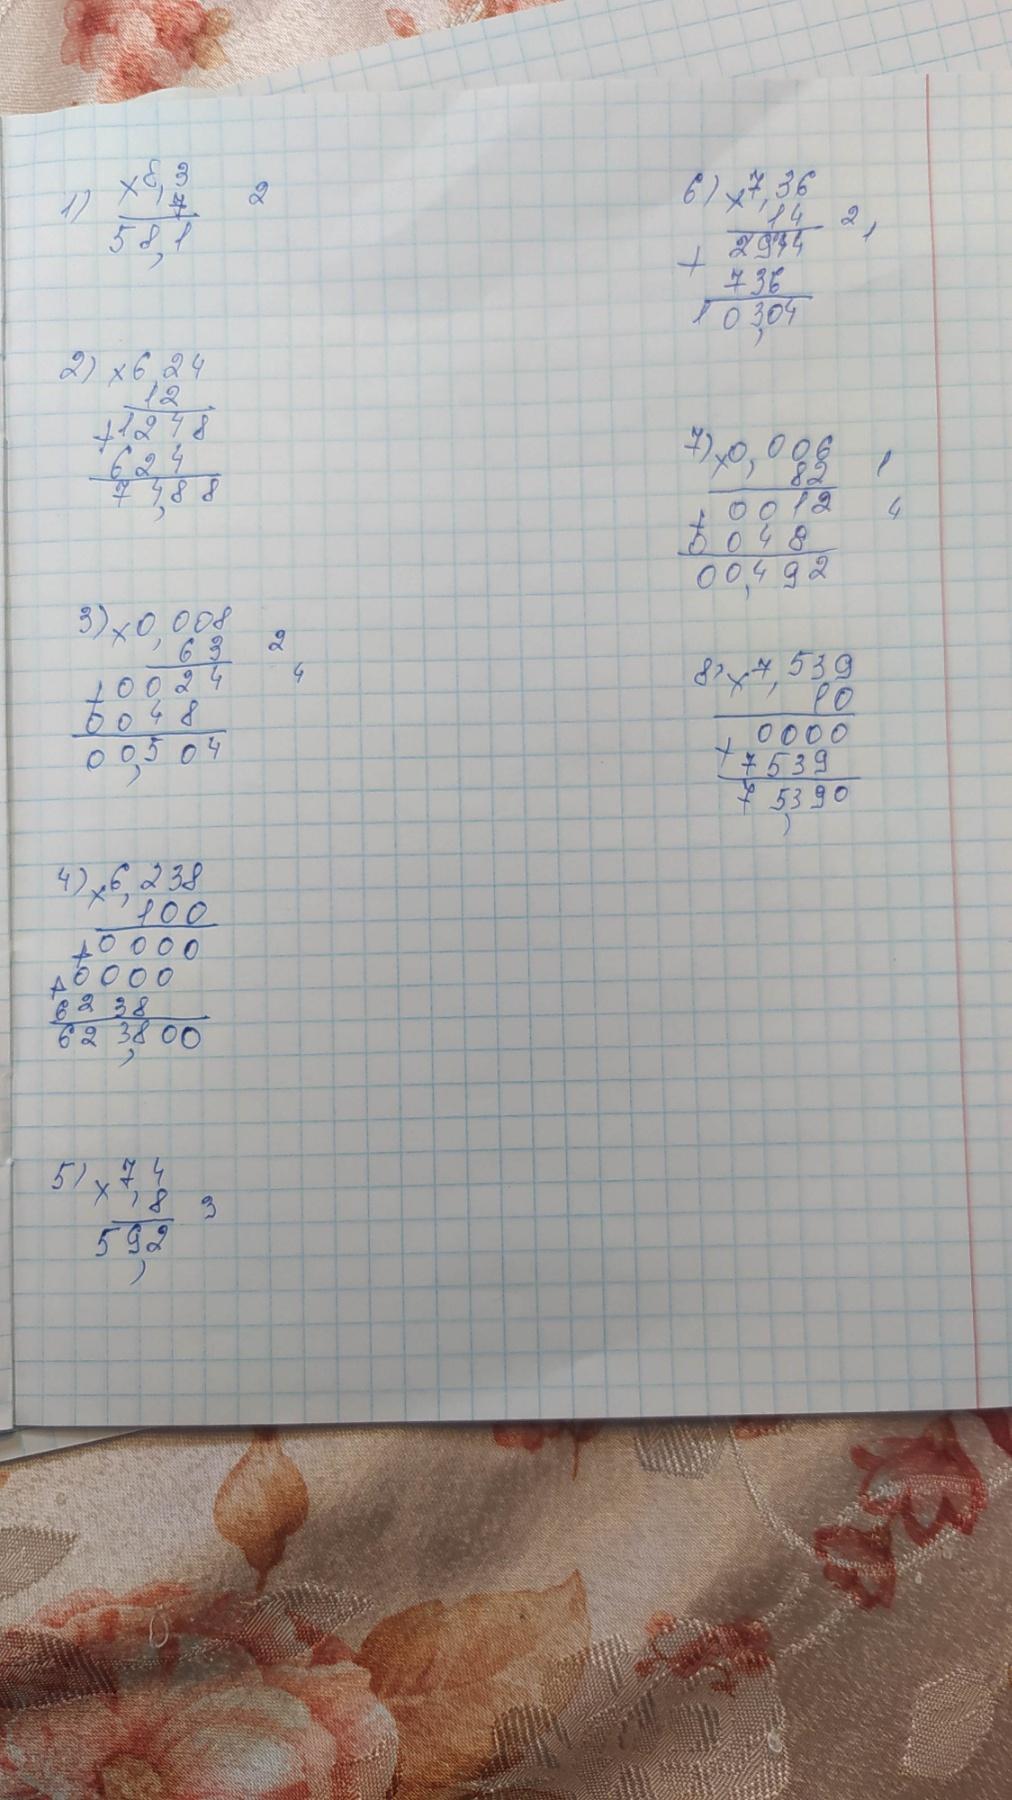 1) ×8,3 2
7
58,1
2) ×6,24
12
+1248
624
74,88
3) ×0,008
63 2
+0024 4
0048
00,504
4) ×6,238
100
+0000
+0000
6238
623,800
5) ×74
,8 3
59,2
6) ×7,36
14 2
+2944 1
736
103,04
7) ×0,006
82 1
+0012 4
0048
00,492
8) ×7,539
10
+0000
7539
75,390